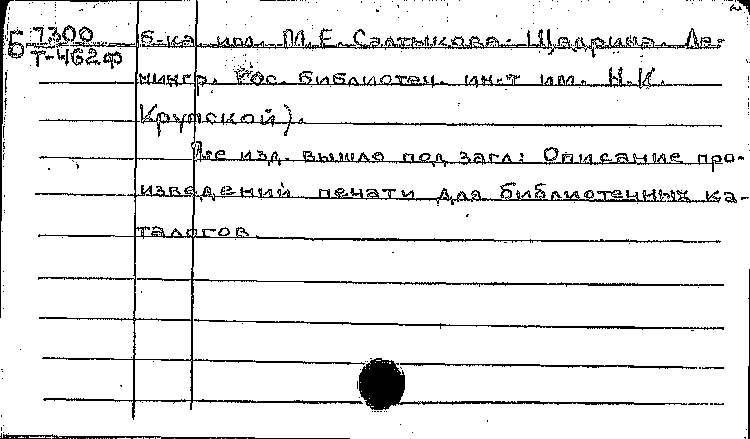 Б 7300
Т-462ф
б-ка им. М.Е. Салтыкова-Щедрина. Ле-
нингр. Гос. библиотеч. ин-т им. Н.К.
Крупской).
изд. вышло под загл: Описание про-
изведений печати для библиотечных ка-
талогов.